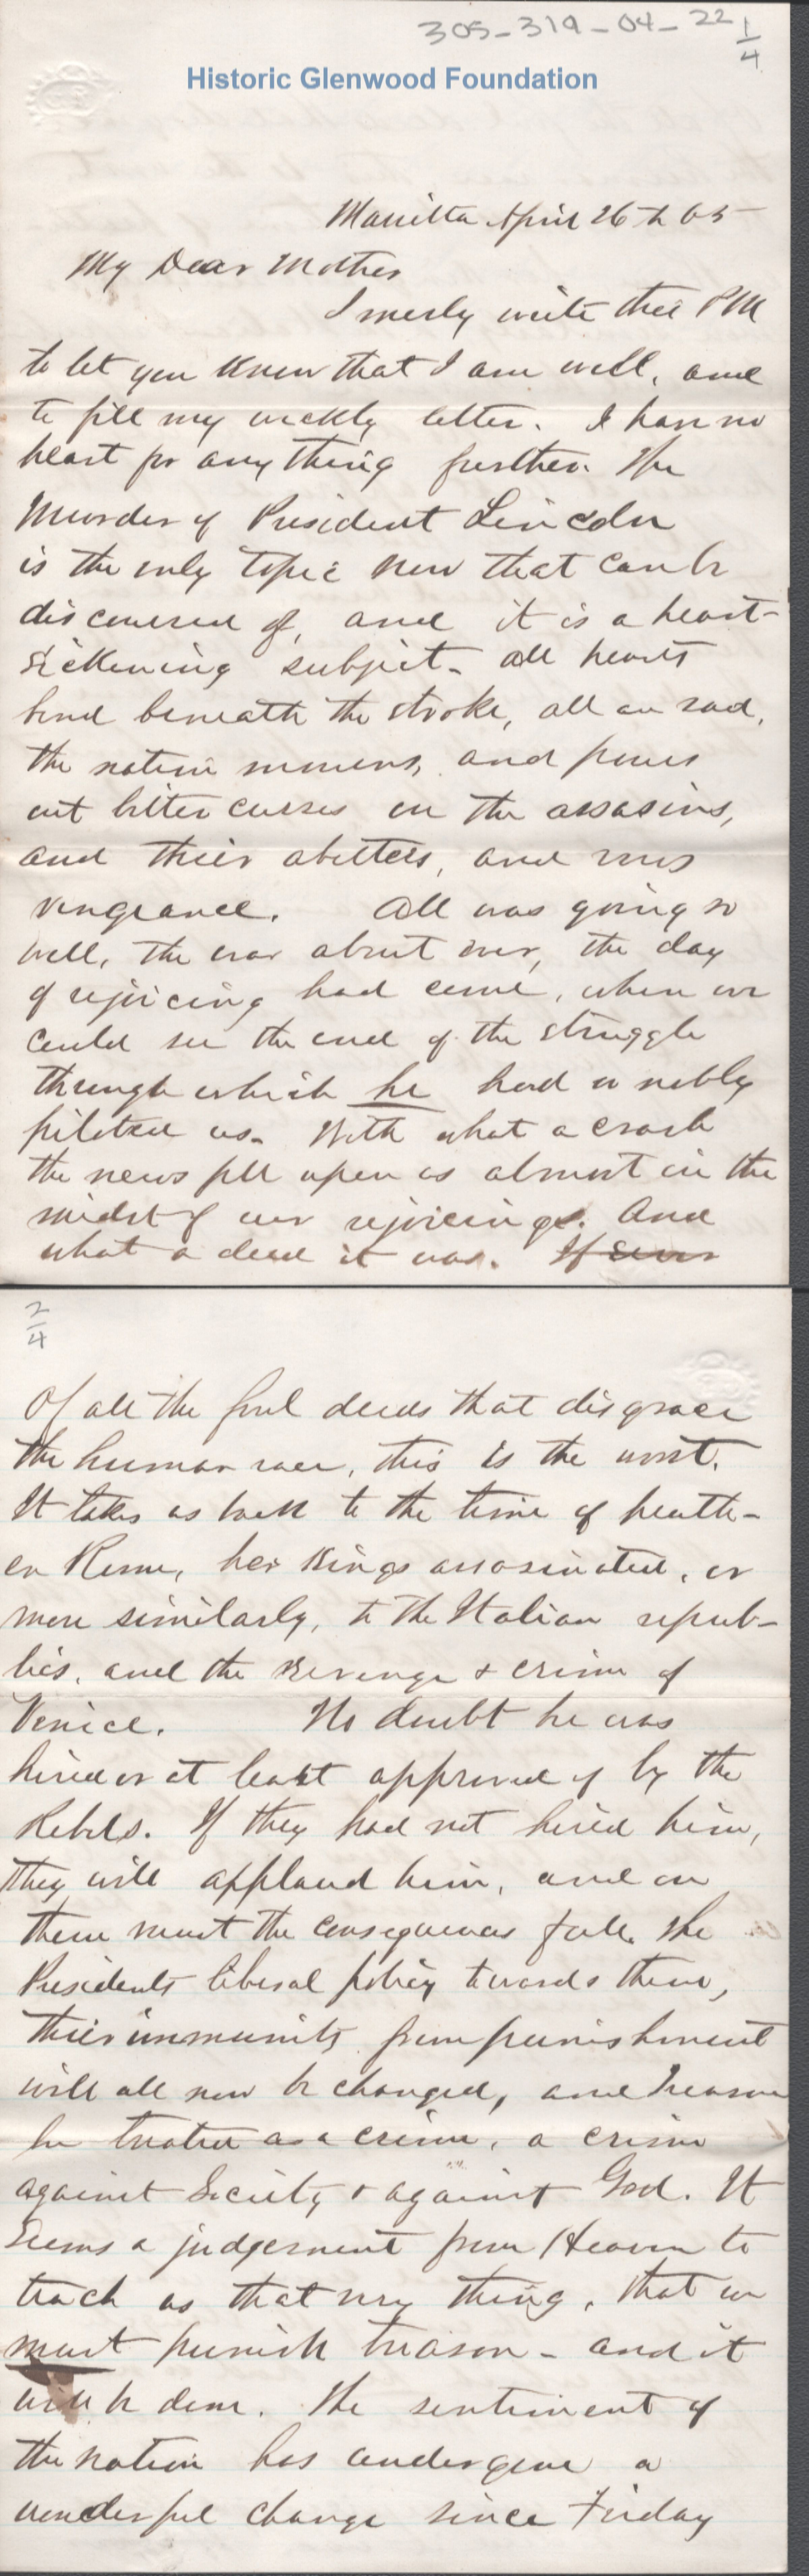 305-319-04-22 1/4
Historic Glenwood Foundation
Marietta April 26th 65
My Dear Mother
I merly write this PM
to let you know that I am well, and
to fill my weekly letter. I have no
heart for any thing further. The
Murder of President Lincoln
is the only topic now that can be
discoursed of, and it is a heart-
sickening subject. All hearts
bend beneath the stroke, all are sad,
the nation mourns, and pours
out bitter curses on the assasins,
and their abetters, and vows
vengeance. All was going so
well, the war about over, the day
of rejoicing had come, when we
could see the end of the struggle
through which he had so nobly
piloted us. With what a crash
the news fell upon us almost in the
midst of our rejoicings. And
what a deed it was. If ever
2/4
Of all the foul deeds that disgrace
the human race, this is the worst.
It takes us back to the time of heath-
en Rome, her Kings assasinated, or
more similarly, to the Italian repub-
lics, and the revenge & crime of
Venice. No doubt he was
hired or at least approved of by the
Rebels. If they had not hired him,
they will applaud him, and on
them must the consequences fall. The
Presidents liberal policy towards them,
their immunity from punishment
will all now be changed, and treason
be treated as a crime, a crime
against Society & against God. It
Seems a judgement from Heaven to
teach us that very thing, that we
must punish treason - and it
will be done. The sentiment of
the nation has undergone a
wonderful change since Friday